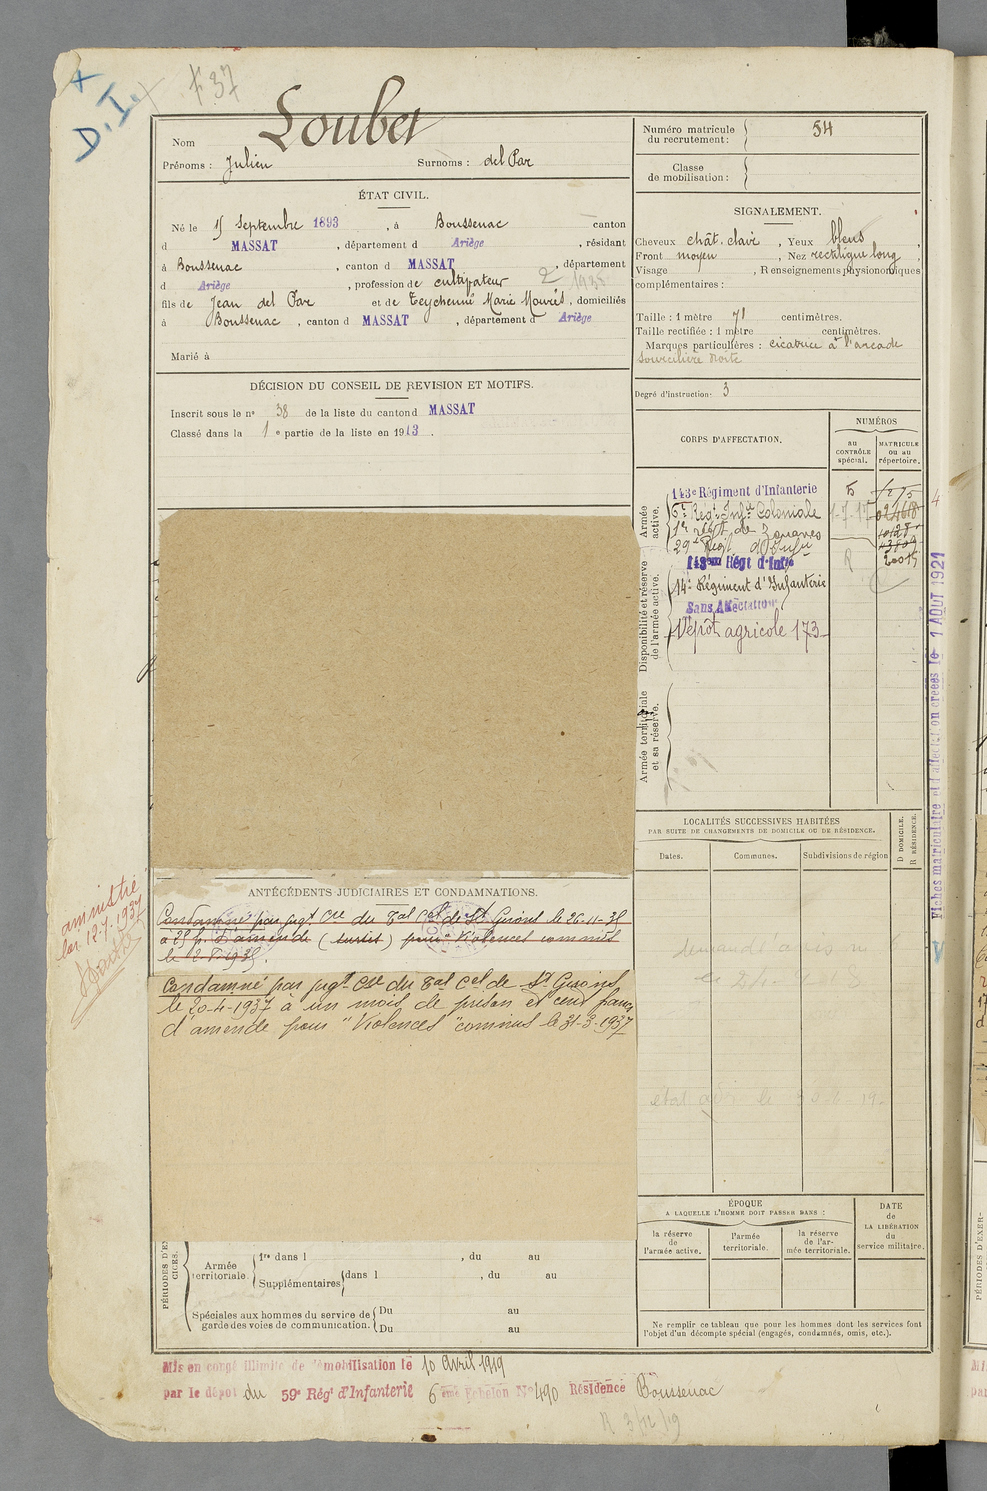 X
D.I.
F 37
Nom Loubet
Prénoms : Julien Surnoms : del Par
ÉTAT CIVIL.
Né le 15 Septembre 1893 , à Boussenac canton
d MASSAT , département d Ariège , résidant
à Boussenac , canton d MASSAT , département
d Ariège , profession de cultivateur 2 1935
fils de Jean del Par et de Teychenné Marie , domiciliés
à Boussenac , canton d MASSAT , département d Ariège
Marié à
DÉCISION DU CONSEIL DE REVISION ET MOTIFS.
Inscrit sous le n° 38 de la liste du canton d MASSAT
Classé dans la 1 e partie de la liste en 1913 .
ANTÉCÉDENTS JUDICIAIRES ET CONDAMNATIONS.
Condamné par jugt Cel du Tal Cel de St Girons le 26-11-35
à 25 f. d'amende (sursis) pour Violences commises
le 2-8-1935.
amnistié
loi 12-7-1937
Condamné par jugt Cel du Tal Cel de St Girons
le 20-4-1937 à un mois de prison et cent francs
d'amende pour "Violences" commises le 31-3-1937
PÉRIODES D'EX
CICES.
Armée
territoriale.
1re dans l , du au
Supplémentaires dans l , du au
Spéciales aux hommes du service de
garde des voies de communication.
Du au
Du au
Mis en congé illimité de démobilisation le 10 Avril 1919
par le dépôt du 59e Régt d'Infanterie 6ème Echelon N° 490 Résidence Boussenac
R 3/12/19
Numéro matricule
du recrutement : 54
Classe
de mobilisation :
SIGNALEMENT.
Cheveux chât. clair , Yeux bleus ,
Front moyen , Nez rectiligne long ,
Visage , Renseignements physionomiques
complémentaires :
Taille : 1 mètre 71 centimètres.
Taille rectifiée : 1 mètre centimètres.
Marques particulières : cicatrice à l'arcade
sourcilière droite
Degré d'instruction : 3
CORPS D'AFFECTATION.
NUMÉROS
au
CONTRÔLE
spécial.
MATRICULE
ou au
répertoire.
Armée
active.
143e Régiment d'Infanterie
6e Régt Inftie Coloniale
1er régt de Zouaves
29e Régt d'Infie
Disponibilité et réserve
de l'armée active.
143ème Régt d'Infie 20015
14e Régiment d'Infanterie
Sans Affectation
Dépôt agricole 173
Armée territoriale
et sa réserve.
LOCALITÉS SUCCESSIVES HABITÉES
PAR SUITE DE CHANGEMENTS DE DOMICILE OU DE RÉSIDENCE.
Dates.
Communes.
Subdivisions de région
D DOMICILE.
R RÉSIDENCE.
ÉPOQUE
A LAQUELLE L'HOMME DOIT PASSER DANS :
la réserve
de
l'armée active.
l'armée
territoriale.
la réserve
de l'ar-
mée territoriale.
DATE
de
LA LIBÉRATION
du
service militaire.
Ne remplir ce tableau que pour les hommes dont les services font
l'objet d'un décompte spécial (engagés, condamnés, omis, etc.).
Fiches matriculaire et d'affectation créées le 1 AOUT 1921
PÉRIODES D'EXER-